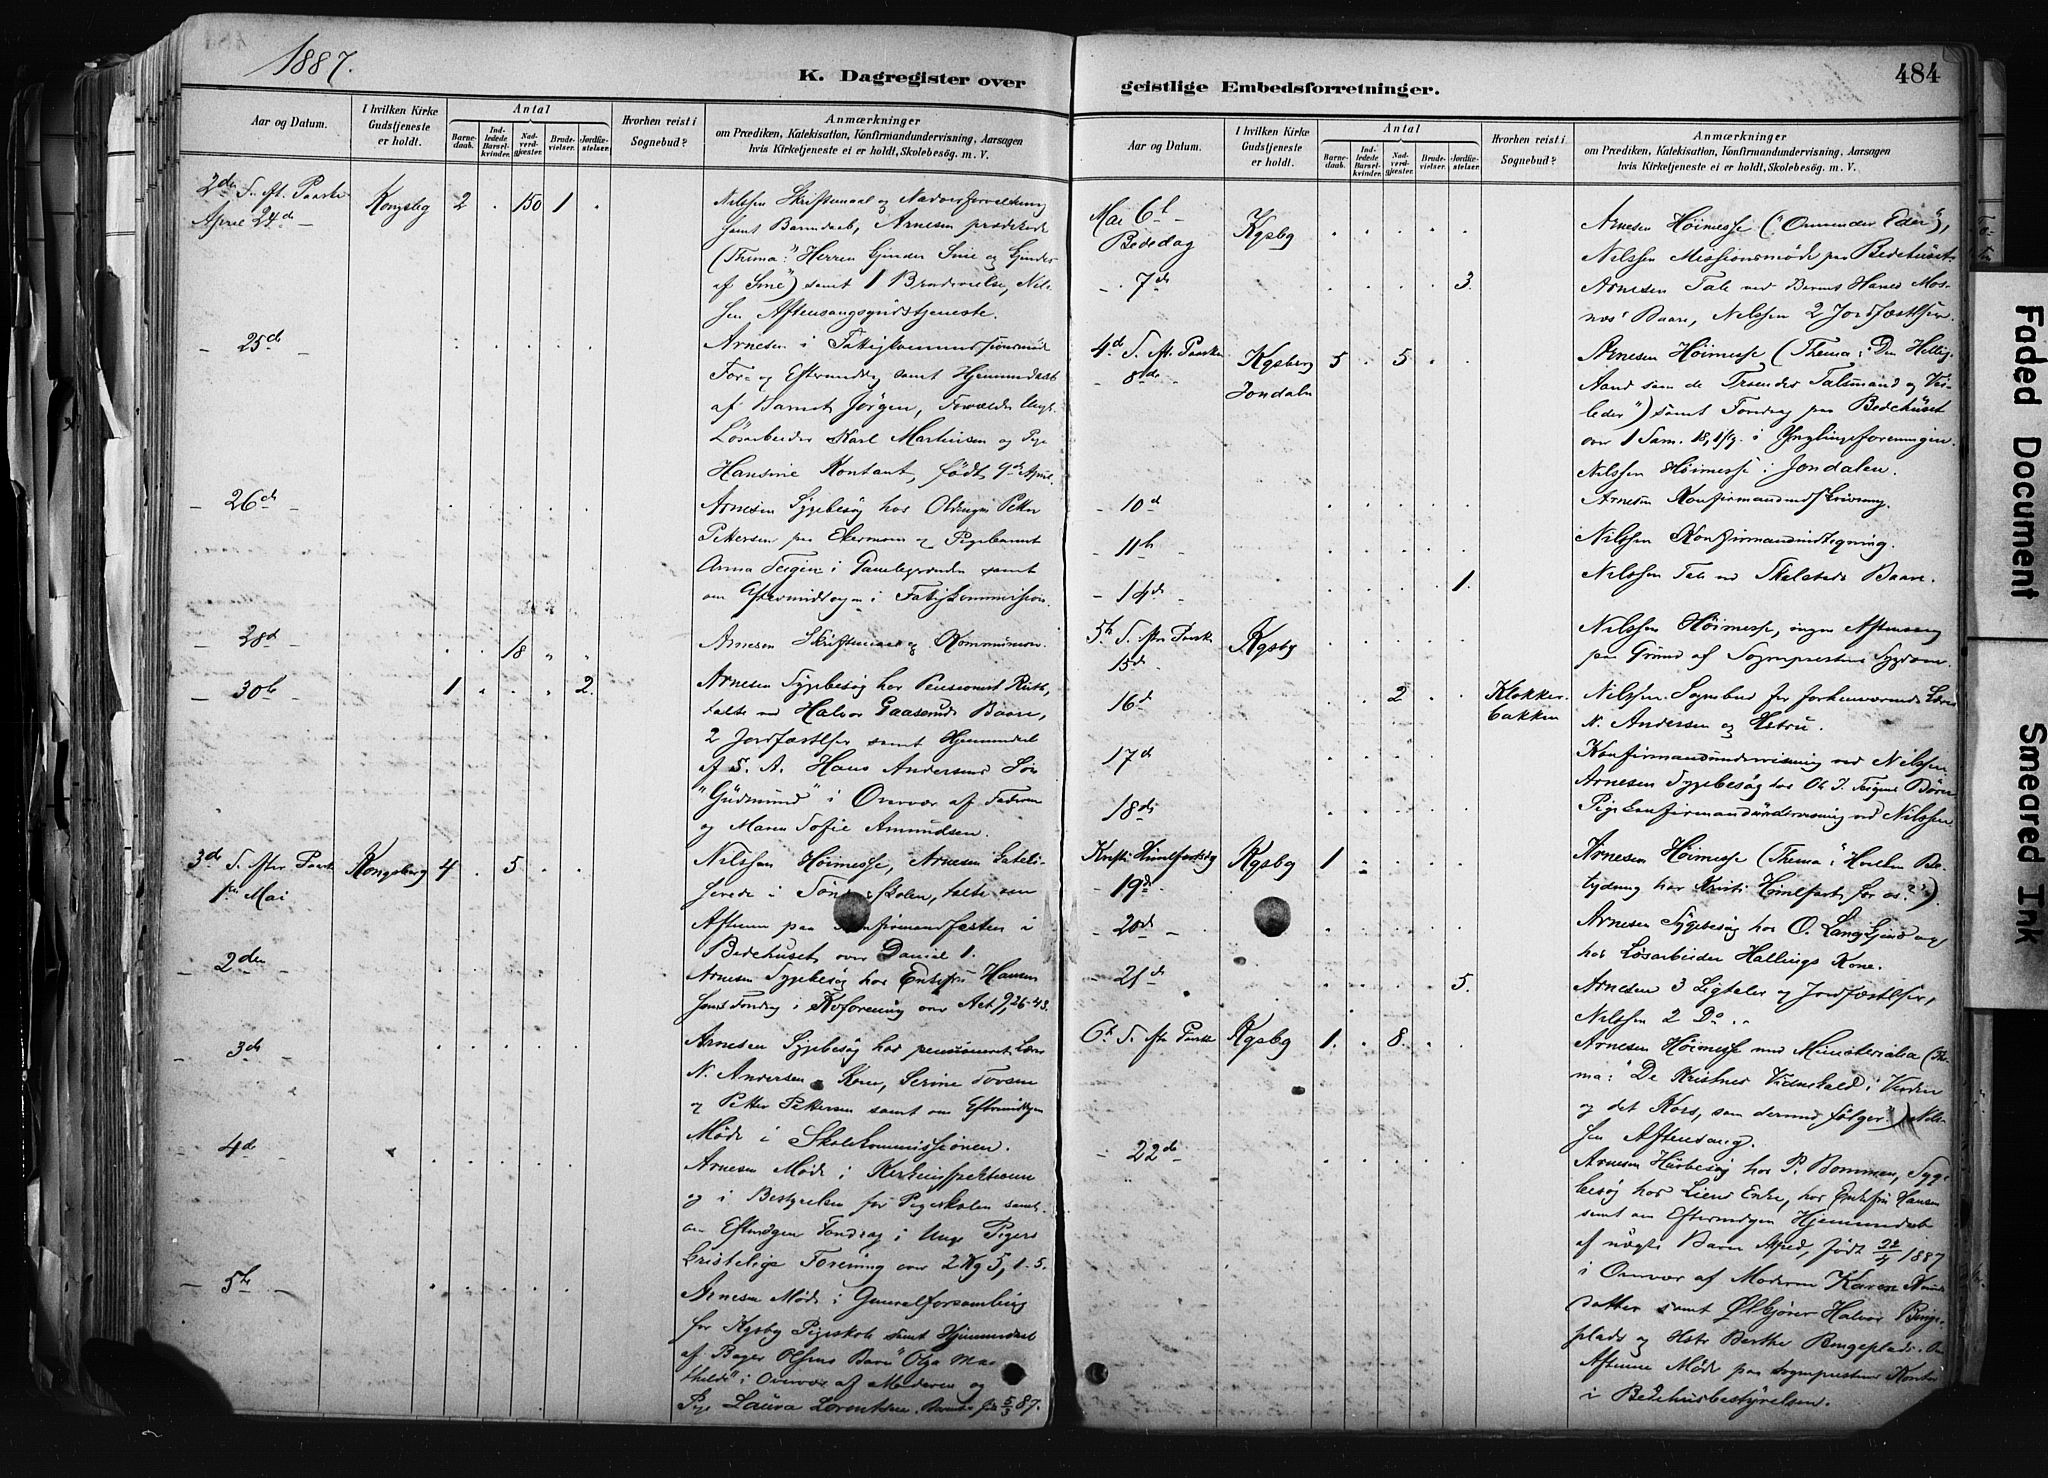 1887.
K. Dagregister over
geistlige Embedsforretninger.
484
Aar og Datum.
I hvilken Kirke Gudstjeneste er holdt.
Antal
Barnedaab.
Indledede Barselkvinder.
Nadverdgjæster.
Brudevielser.
Jordfæstelser.
Hvorhen reist i Sognebud?
Anmærkninger
om Prædiken, Katekisation, Konfirmandundervisning, Aarsagen
hvis Kirketjeneste ei er holdt, Skolebesøg. m. V.
2den S. eft. Paaske
April 24d
Kongsbg 2 . 150 1 .
Nilssen Skriftemaal og
samt Barnedaab, Arnesen prædikede
(Thema: "Herren kjender Sine og kjendes
af Sine") samt 1 Brudevielse, Nils-
sen Aftensangsgudstjeneste.
25d
Arnesen i Fattigkommissionsmøde
For- og Eftermiddag samt Hjemmedaab
af Barnet Jørgen, Forældre Ungk.
Løsarbeider Karl Martinsen og Pige
Hansine Kontant, født 9de April.
26d
Arnesen Sygebesøg hos Petter
Pettersen paa og Pigebarnet
Anna Teigen i samt
om Eftermiddagen i Fattigkommission.
28d
18
Arnesen Skriftemaal og Kommunion.
30te
1 2.
Arnesen Sygebesøg hos Pensionist
talte ved Halvor Gaaserud's Baare,
2 Jordfæstelser samt Hjemmedaab
af S. A. Hans Andersens Søn
"Gudmund" i Overvær af Faderen
og Maren Sofie Amundsen.
3de S. efter Paaske
1ste Mai
Kongsberg 4 . 5 . .
Nilssen Høimesse, Arnesen kateki-
serede i skolen, talte om
Aftenen paa Konfirmandfesten i
Bedehuset over Daniel 1.
2den
Arnesen Sygebesøg hos Enkefru Hansen
samt Foredrag i Kvforening over Act 9,36-43.
3de
Arnesen Sygebesøg hos pensioneret Lærer
N. Andersen, Serine Tovsen
og Petter Pettersen samt om Eftermiddagen
Møde i Skolekommissionen.
4d
Arnesen Møde i Kirkeinspektionen
og i Bestyrelsen for Pigeskolen samt
om Eftmdgen Foredrag i Unge Pigers
kristelige Forening over 2 Kg 5, 1-5.
5te
Arnesen Møde i Generalforsamling
for Kgsbg Pigeskole samt Hjemmedaab
af Bager Olsens Barn "Olga Mat-
hilde" i Overvær af Moderen og
Pige Laura Lorentsen. Barnet født 5/3 87.
Aar og Datum.
I hvilken Kirke Gudstjeneste er holdt.
Antal
Barnedaab.
Indledede Barselkvinder.
Nadverdgjæster.
Brudevielser.
Jordfæstelser.
Hvorhen reist i Sognebud?
Anmærkninger
om Prædiken, Katekisation, Konfirmandundervisning, Aarsagen
hvis Kirketjeneste ei er holdt, Skolebesøg. m. V.
Mai 6te
Bededag
Kgsbg
Arnesen Høimesse ("Omvender Eder"),
Nilssen Missionsmøde paa Bedehuset.
7de
3.
Arnesen Tale ved Hans Mos-
nes' Baare, Nilssen 2 Jordfæstelser.
4d S. eft. Paaske
8de
Kgsberg 5 . 5 . .
Jondaln
Arnesen Høimesse (Thema: "Den Hellig
Aand som de Troendes Talsmand og Vei-
leder") samt Foredrag paa Bedehuset
over 1 Sam. 18,1 flg. i Ynglingeforeningen.
Nilssen Høimesse i Jondalen.
10d
Arnesen Konfirmandindskrivning.
11te
Nilssen Konfirmandindtegning.
14de
1.
Nilssen Tale ved Baare.
5te S. efter Paaske
15de
Kgsbg
Nilssen Høimesse, ingen Aftensang
paa Grund af Sognepresten's Sygdom.
16d
2
Klokker-
bakken
Nilssen Sognebud for forhenværende Lærer
N. Andersen og Hstru.
17d
Konfirmandundervisning ved Nilssen
Arnesen Sygebesøg hos Ol. J. Teigens Børn
18de
Pigekonfirmandundervisning ved Nilssen.
Kristi Himlfartsdg
19de
Kgsbg 1
Arnesen Høimesse (Thema: "Hvilken Be-
tydning har Kristi Himlfart for os?").
20de
Arnesen Sygebesøg hos O. og
hos Løsarbeider Hallings Kone.
21d
5.
Arnesen 3 Ligtaler og Jordfæstelser,
Nilssen 2 Do. .
6te S. efter Paaske
Kgsbg 1. . 8. . .
Arnesen Høimesse med Ministerialia (The-
ma: "De Kristnes Vidnekald i Verden
og det Kors, som dermed følger") Nils-
sen Aftensang.
22de
Arnesen Husbesøg hos P. Bommen, Syge-
besøg hos Liens Enke, hos Enkefru Hansen
samt om Eftermdgen Hjemmedaab
af uægte Barn født 22/4 1887
i Overvær af Moderen Karen
datter samt Halvor Binge-
plads og Hstr Berthe Bingeplads. Om
Aftenen Møde paa Sogneprestens Kontor
i Bedehusbestyrelsen.
Faded Document
Smeared Ink